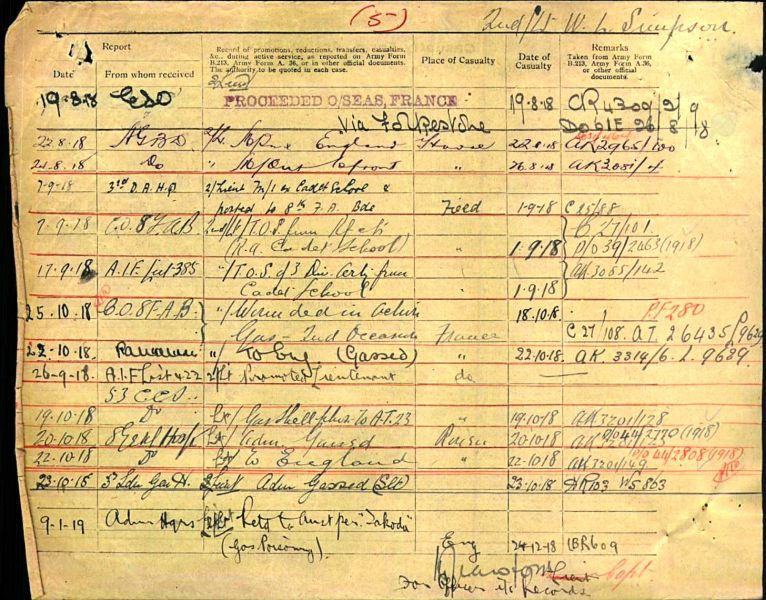 (5)
2nd/Lt W. L. Simpson.
Report
Record of promotions, reductions, transfers, casualties,
&c., during active service, as reported on Army Form
B.213, Army Form A. 36, or in other official documents.
The authority to be quoted in each case.
Place of Casualty
Date of
Casualty
Remarks
Taken from Army Form
B.213, Army Form A. 36,
or other official
documents.
Date
From whom received
19.8.18
PROCEEDED O/SEAS, FRANCE
19.8.18
CR4309/2/9
Via Folkestone
26/8/18
22.8.18
England
22.8.18
AK2965/100
24.8.18
Do
26.8.18
7-9-18
3rd D.A.H.Q.
2/Lieut M/I ex Cadet School &
posted to 8th F.A. Bde
Field
1-9-18
C25/88
7.9.18
C.O. 8 F.A.B.
2nd/Lt T.O.S. from
(R.A. Cadet School)
"
1.9.18
B 27/101
D/O 39/2463(1918)
17.9.18
A.I.F. List 385
"/T.O.S. of 3 Div. Arty from
Cadet School
"
1.9.18
AK3055/142
25.10.18
C.O. 8 F.A.B.
"/Wounded in Action
Gas - 2nd Occasion
France
18.10.18
P.F 280
C 27/108. A.T. 26435/9639
22.10.18
"/ To Eng (Gassed)
"
22.10.18
AK.3314/6. L. 9639
26-9-18
A.I.F List 422
2/Lt Promoted Lieutenant
do
53 C.C.S.
19.10.18
Do
Lt/ Gas Shell to A.T.23
"
19.10.18
AK3201/128
20.10.18
8 Genl Hosp
Lt/ Adm. Gassed
Rouen
20.10.18
D/O 44/2730(1918)
22.10.18
Do
Lt/ to England
"
22-10-18
AK3201/149
D/O 44/2808(1918)
23.10.18
3rd Ldn Gen H.
Lieut Adm Gassed (Slt)
23.10.18
HR103 W5863
9-1-19
Adm Hqrs
Lt Retd to Aust per "Takada"
(Gas Poisoning).
Eng
24-12-18
BR609
Capt
For Officer i/c Records